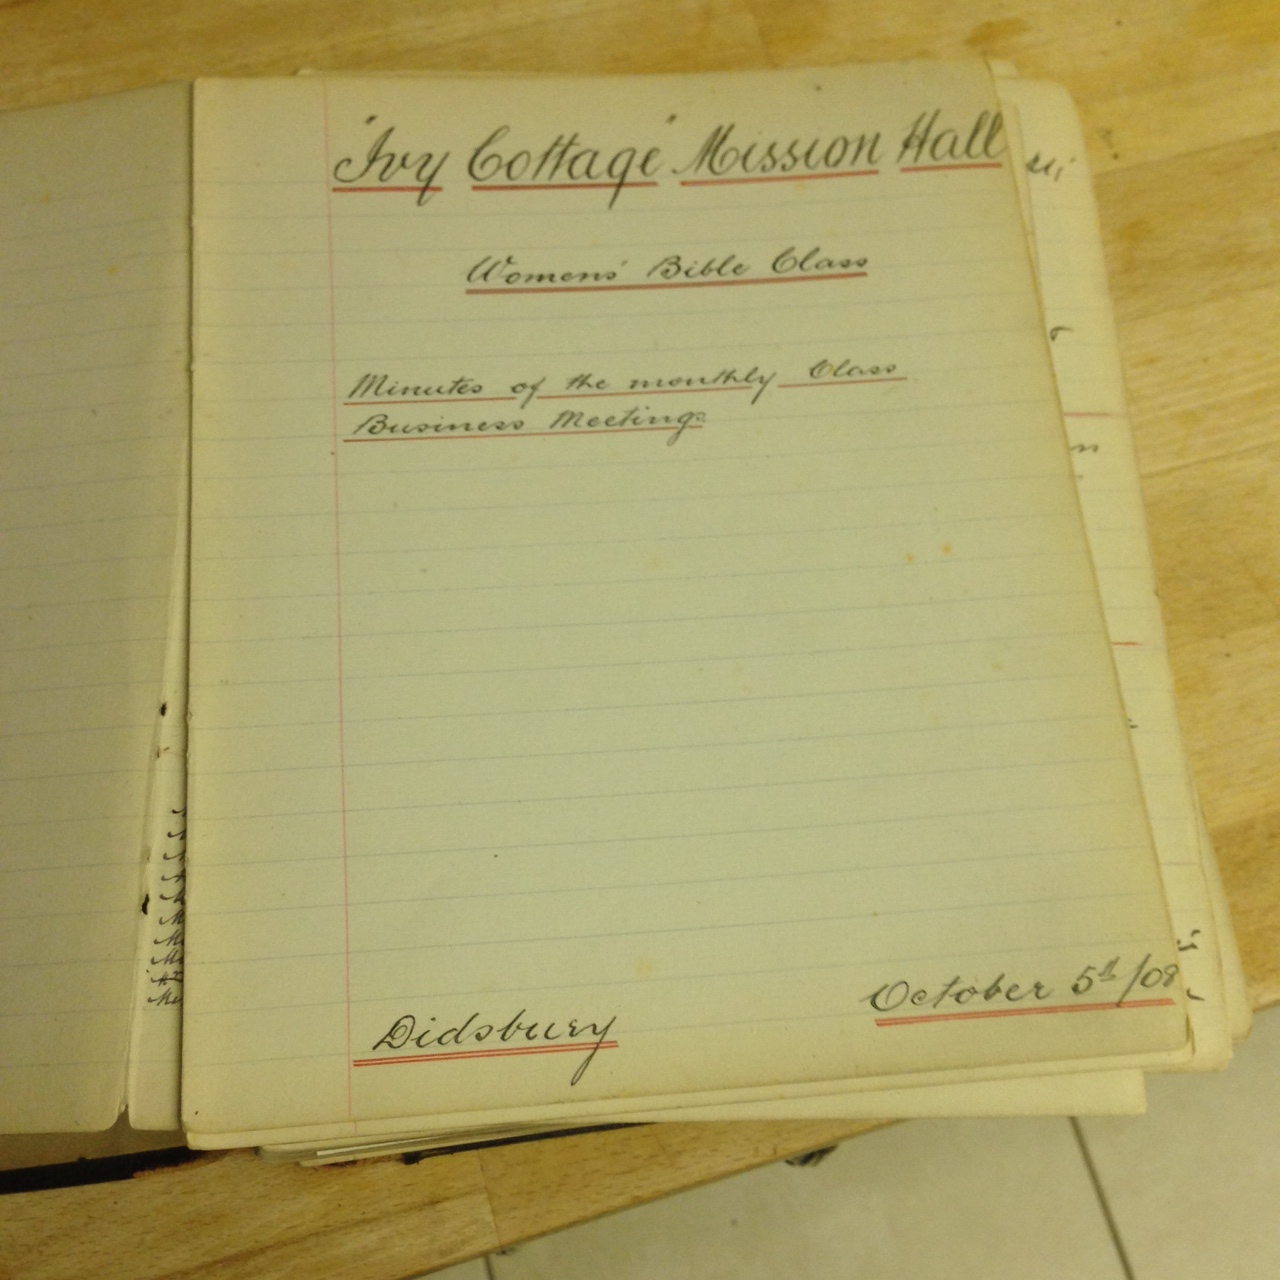 "Ivy Cottage" Mission Hall
Womens' Bible Class
Minutes of the monthly Class
Business Meetings
October 5th/08
Didsbury